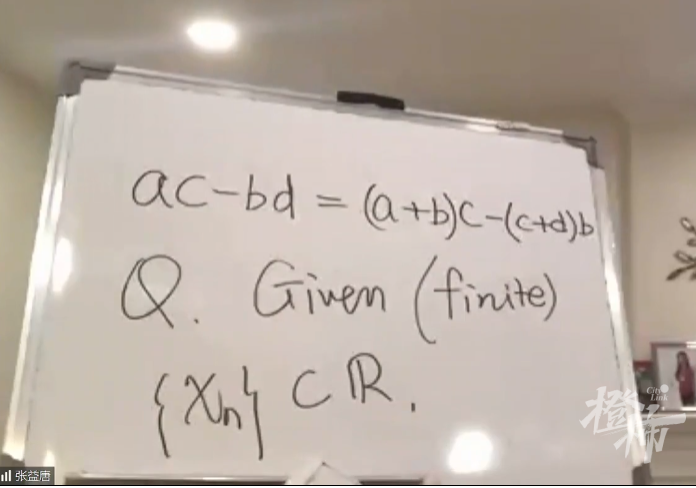 ac-bd = (a+b)c-(c+d)b
Q. Given (finite)
{Xn} ⊂ ℝ.
City Link
橙柿
张益唐